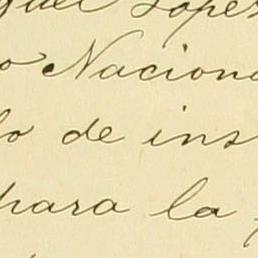 guel Lopes
o Nacion
lo de ins
para la